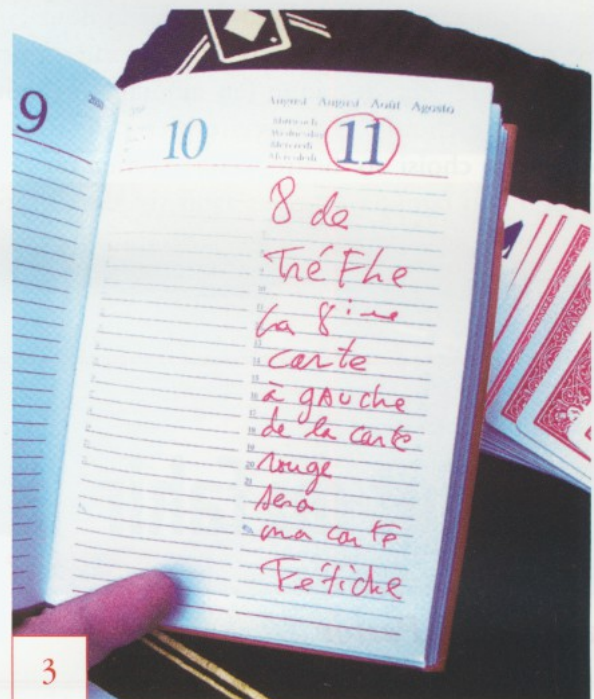 9
10
August August Août Agosto
Mittwoch
Wednesday
Mercredi
Mercoledì
11
8 de
TréFle
La 8ième
carte
à gAuche
de la carte
rouge
sera
ma carte
Fétiche
3